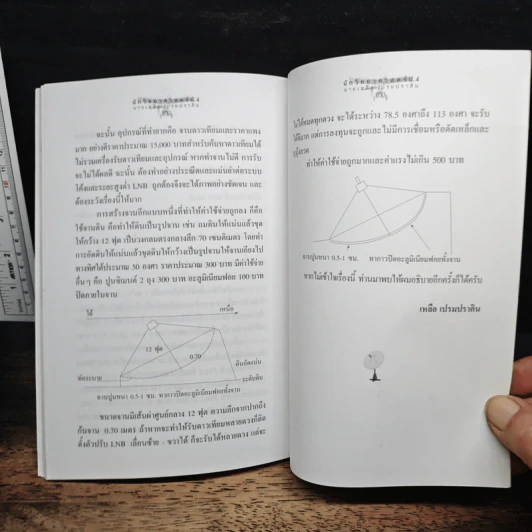 นักวิทยาศาสตร์ 4
ฉะนั้น อุปกรณ์ที่ทำยากคือ จานดาวเทียมและราคาแพง
มาก อย่างดีราคาประมาณ 15,000 บาทสำหรับค้นหาดาวเทียมได้
ไม่รวมเครื่องรับดาวเทียมและอุปกรณ์ หากทำจานไม่ดี การรับ
จะไม่ได้ผลดี ฉะนั้น ต้องทำอย่างประณีตและแม่นยำต่อระบบ
โค้งและระยะสูงต่ำ LNB ถูกต้องจึงจะได้ภาพอย่างชัดเจน และ
ต้องระวังเรื่องนี้ให้มาก
การสร้างจานอีกแบบหนึ่งที่ทำให้ค่าใช้จ่ายถูกลง ก็คือ
ใช้จานดิน คือทำให้ดินเป็นรูปจาน เช่น ถมดินให้แน่นแล้วขุด
ให้กว้าง 12 ฟุต เป็นวงกลมตรงกลางลึก 70 เซนติเมตร โดยทำ
การอัดดินให้แน่นแล้วขุดดินให้กว้างเป็นรูปจานให้จานเอียงไป
ทางทิศใต้ประมาณ 50 องศา ราคาประมาณ 300 บาท มีค่าใช้จ่าย
อื่นๆ คือ ปูนซีเมนต์ 2 ถุง 300 บาท อะลูมิเนียมฟอย 100 บาท
ปิดภายในจาน
ใต้ เหนือ
12 ฟุต
0.70
ดินอัดแน่น
ท่อระบาย ระดับดิน
จานปูนหนา 0.5-1 ซม. ทากาวปิดอะลูมิเนียมฟอยทั้งจาน
ขนาดจานมีเส้นผ่าศูนย์กลาง 12 ฟุต ความลึกจากปากถึง
ก้นจาน 0.70 เมตร ถ้าหากจะทำให้รับดาวเทียมหลายดวงก็ติด
ตั้งตัวปรับ LNB เลื่อนซ้าย - ขวาได้ ก็จะรับได้หลายดวง แต่จะ
นักวิทยาศาสตร์ 4
ไม่ได้หมดทุกดวง จะได้ระหว่าง 78.5 องศาถึง 113 องศา จะรับ
ได้ดีมาก แต่การลงทุนจะถูกและไม่มีการเชื่อมหรือตัดเหล็กและ
ทำให้ค่าใช้จ่ายถูกมากและค่าแรงไม่เกิน 500 บาท
จานปูนหนา 0.5-1 ซม. ทากาวปิดอะลูมิเนียมฟอยทั้งจาน
หากไม่เข้าใจเรื่องนี้ ท่านมาพบให้ผมอธิบายอีกครั้งก็ได้ครับ
เหลือ เปรมปราคิน